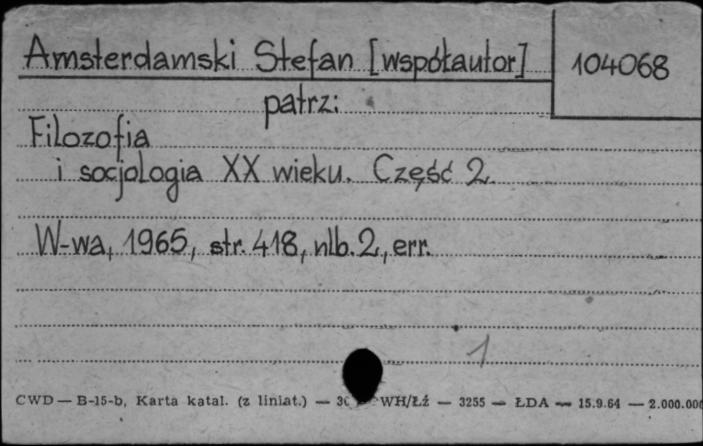 Amsterdamski Stefan [współautor] 104068
patrz:
Filozofia
i socjologia XX wieku. Część 2.
W-wa, 1965, str. 418, nlb. 2, err.
1
CWD — B-15-b, Karta katal. (z liniat.) — WH/Łź — 3255 — ŁDA — 15.9.64 — 2.000.000